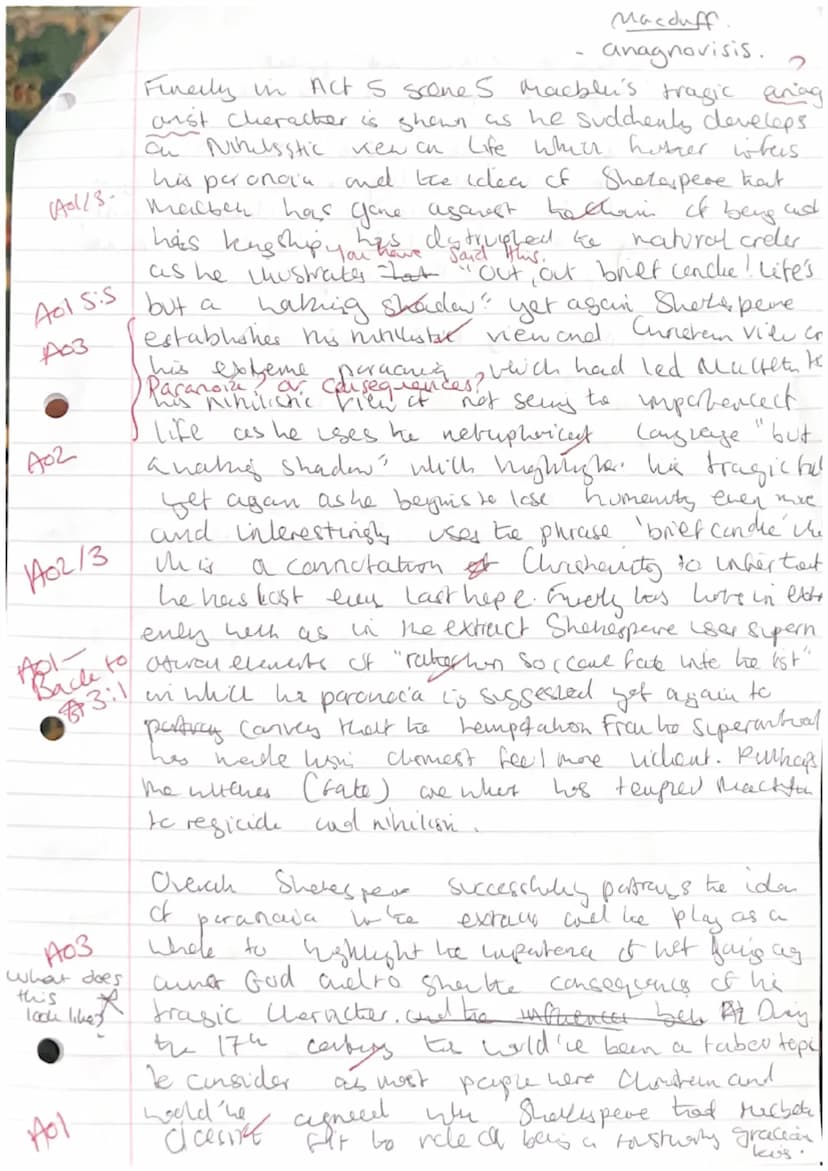 Macduff.
- anagnovisis.
?
Finally in Act 5 scene 5 Macbeth's tragic anag
onist character is shown as he suddenly develops
an Nihilistic view on life which further infers
his paranoia and the idea of Shakespere that
A01/3. Macbeth has gone against the chain of being and
his kingship has distrupted the natural order
you have said this.
as he illustrates "Out, out brief candle! Life's
A01 5:5 but a walking shadow". yet again Shakespere
A03 establishes his nihilistic view and Christian view on
his extreme paranoia, which had led Macbeth to
Paranoia? or consequences?
his nihilistic view of not seeing the importance of
life as he uses the metaphorical language "but
A02 a walking shadow" which highlights his tragic fall
yet again as he begins to lose humanity even more
and interestingly uses the phrase 'brief candle'
A02/3 is a connotation of Christianity to infer that
he has lost every last hope. Finally
as in the extract Shakespere uses supern
A01 - Back to 3:1 atural elements of "rather than so come fate into the list"
in which his paranoia is suggested yet again to
convey that the temptation from the supernatural
has made him almost feel more violent. Perhaps
the witches (fate) are what has tempted Macbeth
to regicide and nihilism.
Overall Shakespere successfully portrays the idea
of paranoia in the extract and the play as a
A03 whole to highlight the importance of not going ag
what does this look like? God and to show the consequences of his
tragic character. During
the 17th century this would've been a taboo topic
to consider as most people were Christian and
A01 would've agreed with Shakespere that Macbeth
the role of being a trustworthy gracious
king.